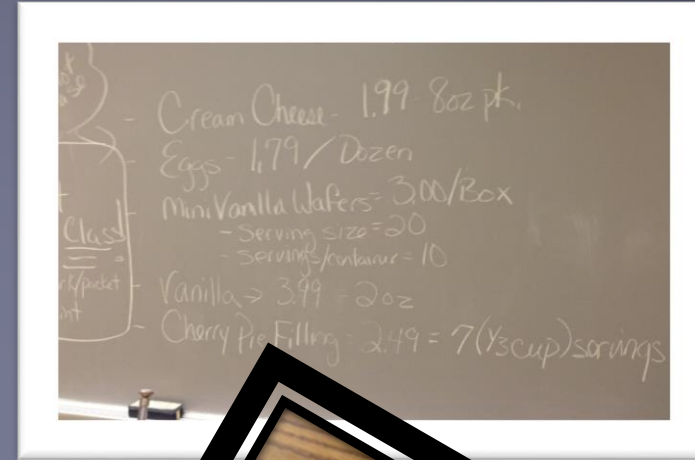 - Cream Cheese - 1.99 - 8oz pk.
- Eggs - 1.79 / Dozen
- Mini Vanilla Wafers = 3.00/Box
- Serving size = 20
- Servings/container = 10
- Vanilla > 3.99 = 2oz
- Cherry Pie Filling - 2.49 = 7 (1/3 cup) servings
Class